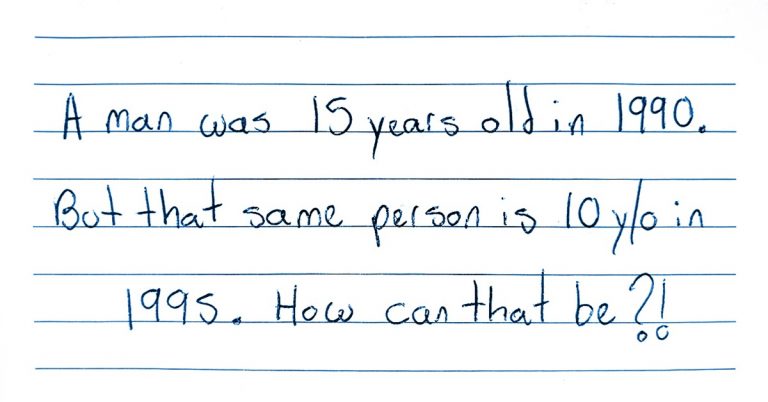 A man was 15 years old in 1990.
But that same person is 10 y/o in
1995. How can that be?!